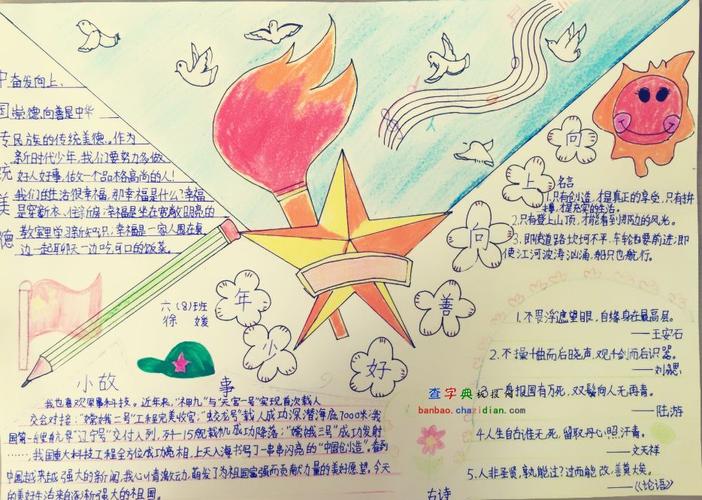 中国传统美德
奋发向上、
崇德向善是中华
民族的传统美德。作为
新时代少年，我们要努力多做
好人好事，做一个品格高尚的人！
我们的生活很幸福，那幸福是什么？幸福
是穿新衣、住新房；幸福是坐在宽敞明亮的
教室里学习新知识；幸福是一家人围在桌
边一起聊天一边吃可口的饭菜。
六(8)班
徐媛
向上向善
好少年
名言
1.只有创造，才是真正的享受，只有拼
搏，才是充实的生活。
2.只有登上山顶，才能看到那边的风光。
3.即使道路坎坷不平，车轮也要前进；即
使江河波涛汹涌，船只也航行。
1.不畏浮遮望眼，自缘身在最高层。
——王安石
2.不操千曲而后晓声，观千剑而后识器。
——刘勰
一身报国有万死，双鬓向人无再青。
——陆游
4.人生自古谁无死，留取丹心照汗青。
——文天祥
5.人非圣贤，孰能无过？过而能改，善莫大焉。
——《论语》
古诗
小故事
我也喜欢军事和科技。近年来，“神九”与“天宫一号”实现首次载人
交会对接；“嫦娥二号”工程完美收官；“蛟龙号”载人成功深潜海底7000米；我
国第一艘航母“辽宁号”交付入列，歼-15舰载机成功降落；“嫦娥三号”成功发射
……我国重大科技工程全方位成功亮相，上天入海书写了一串串闪亮的“中国创造”。看到
中国越来越强大的新闻，我心里激动，萌发了为祖国富强而贡献力量的美好愿望。今天
的美好生活来源逐渐强大的祖国。
查字典 板报网
banbao.chazidian.com